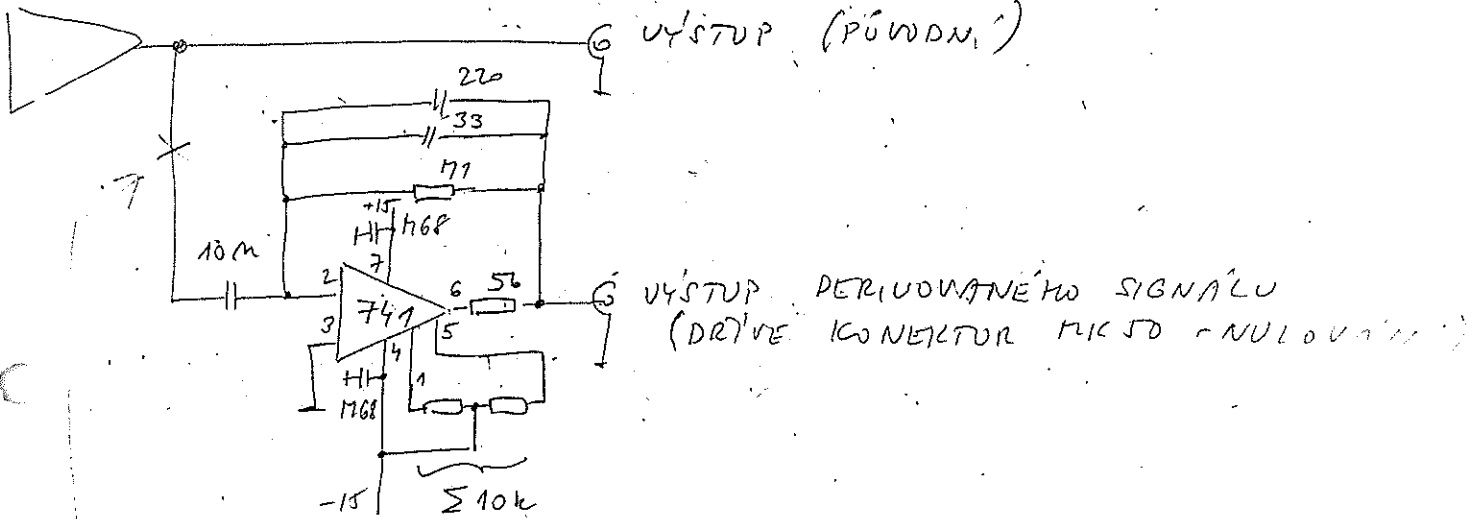 VÝSTUP (PŮVODNÍ)
220
33
M1
+15
M68
10n
7
2
6
56
741
3
5
4
1
M68
VÝSTUP DERIVOVANÉHO SIGNÁLU
(DŘÍVE KONEKTOR MK50 - NULOVÁNÍ)
-15
Σ10k